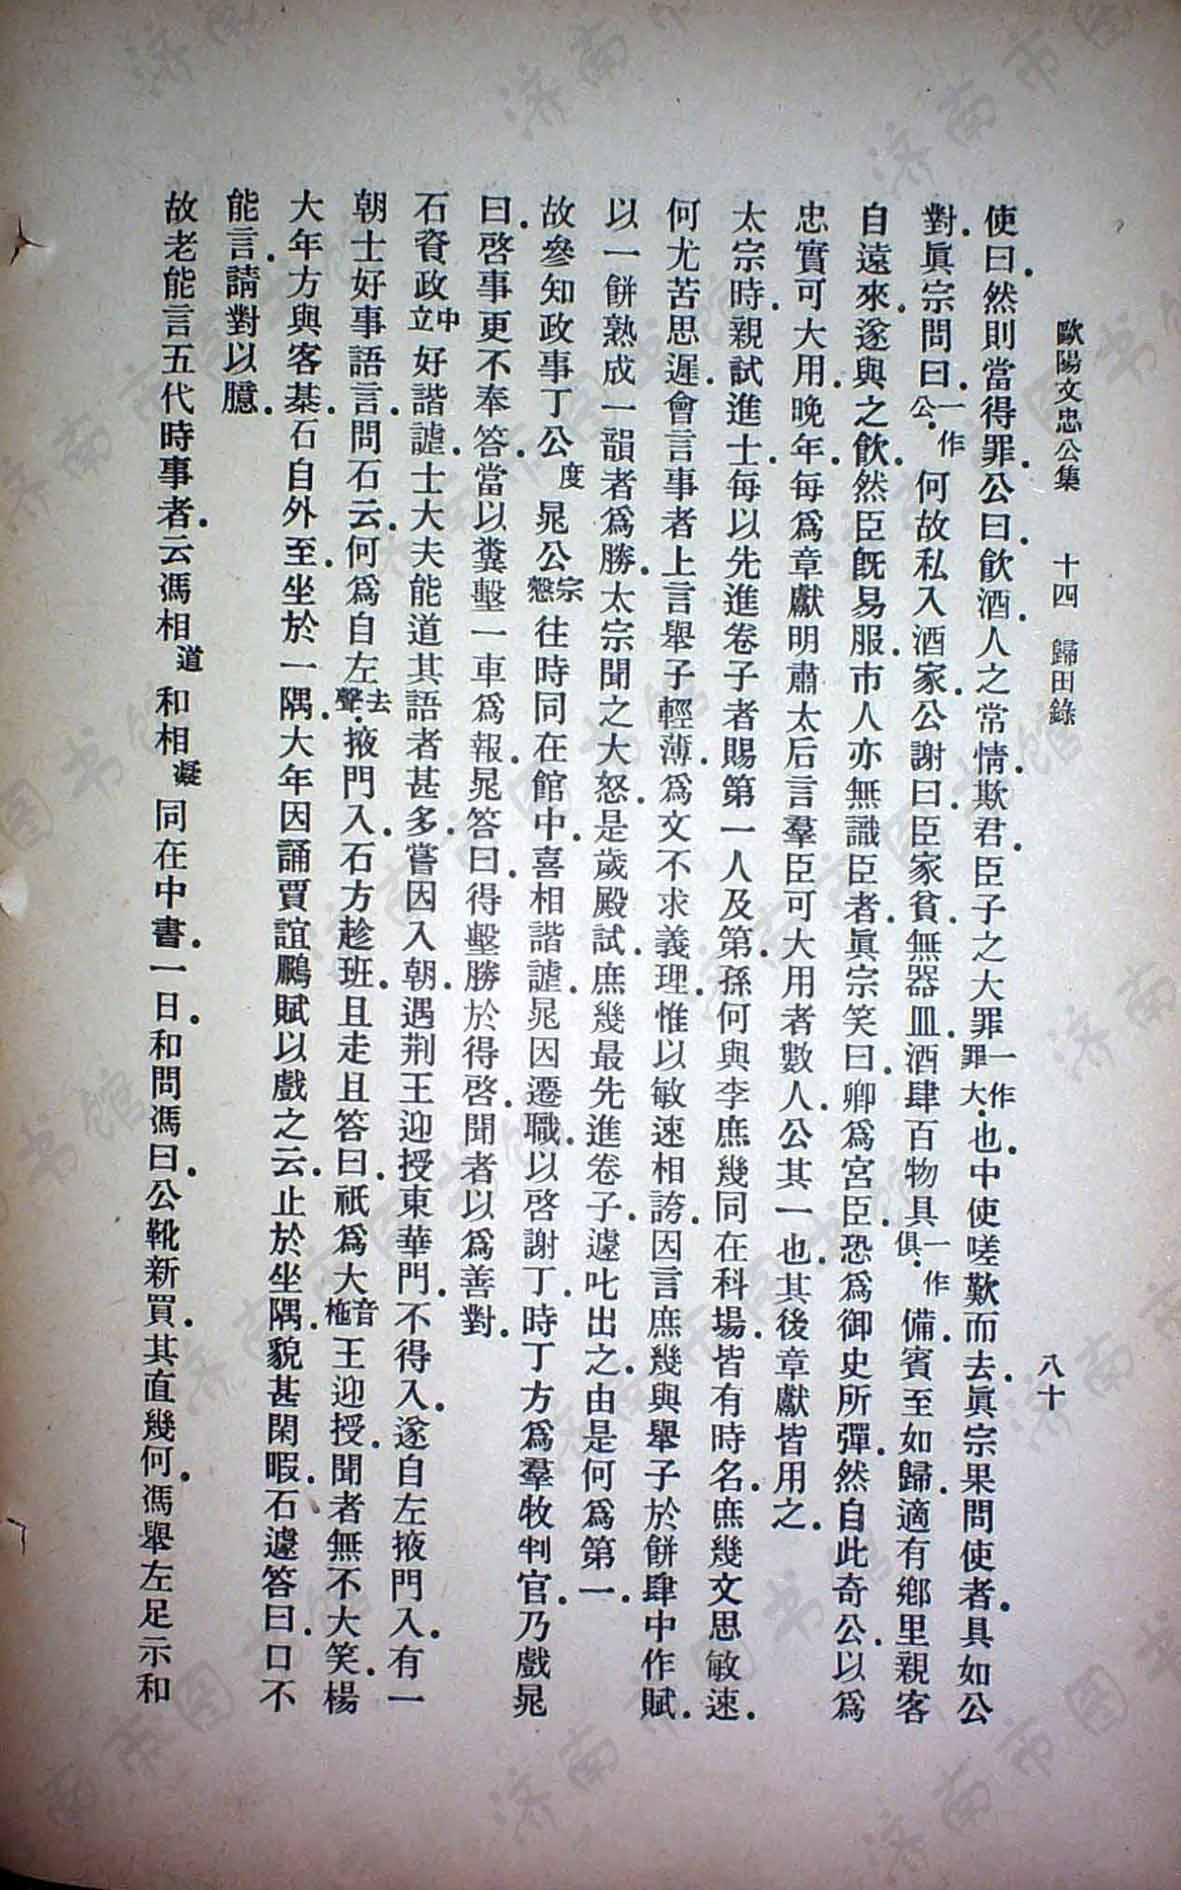 歐陽文忠公集　十四　歸田錄　八十
使曰．然則當得罪．公曰．飲酒．人之常情．欺君．臣子之大罪一作罪大．也．中使嗟歎而去．眞宗果問使者．具如公
對．眞宗問曰．一作公．何故私入酒家．公謝曰．臣家貧．無器皿．酒肆百物具一作俱．備．賓至如歸．適有鄕里親客
自遠來．遂與之飲．然臣既易服．市人亦無識臣者．眞宗笑曰．卿爲宮臣．恐爲御史所彈．然自此奇公．以爲
忠實可大用．晚年．每爲章獻明肅太后言羣臣可大用者數人．公其一也．其後章獻皆用之．
太宗時．親試進士．每以先進卷子者賜第一人及第．孫何與李庶幾同在科場．皆有時名．庶幾文思敏速．
何尤苦思遲．會言事者上言舉子輕薄．爲文不求義理．惟以敏速相誇．因言庶幾與舉子於餅肆中作賦．
以一餅熟成一韻者爲勝．太宗聞之大怒．是歲殿試．庶幾最先進卷子．遽叱出之．由是何爲第一．
故參知政事丁公度晁公宗慤往時同在館中．喜相諧謔．晁因遷職．以啓謝丁．時丁方爲羣牧判官．乃戲晁
曰．啓事更不奉答．當以糞墼一車爲報．晁答曰．得墼勝於得啓．聞者以爲善對．
石資政中立好諧謔．士大夫能道其語者甚多．嘗因入朝．遇荆王迎授東華門．不得入．遂自左掖門入．有一
朝士好事語言．問石云．何爲自左去聲．掖門入．石方趁班．且走且答曰．祇爲大音柂王迎授．聞者無不大笑．楊
大年方與客棊．石自外至．坐於一隅．大年因誦賈誼鵩賦以戲之云．止於坐隅．貌甚閑暇．石遽答曰．口不
能言．請對以臆．
故老能言五代時事者．云馮相道和相凝同在中書．一日．和問馮曰．公靴新買．其直幾何．馮舉左足示和